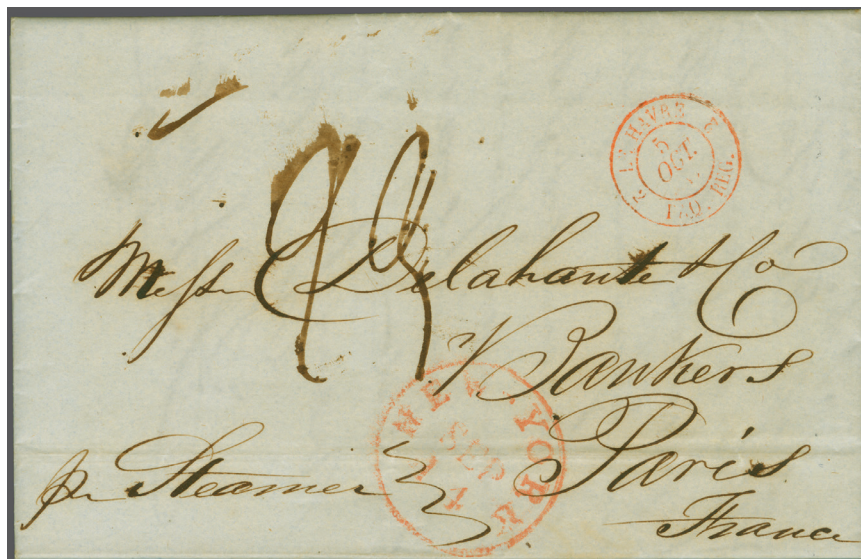 LE HAVRE
5
OCT.
2 PAQ. REG.
Messrs Delahante & Co
Bankers
Paris
France
pr Steamer
NEW-YORK
SEP